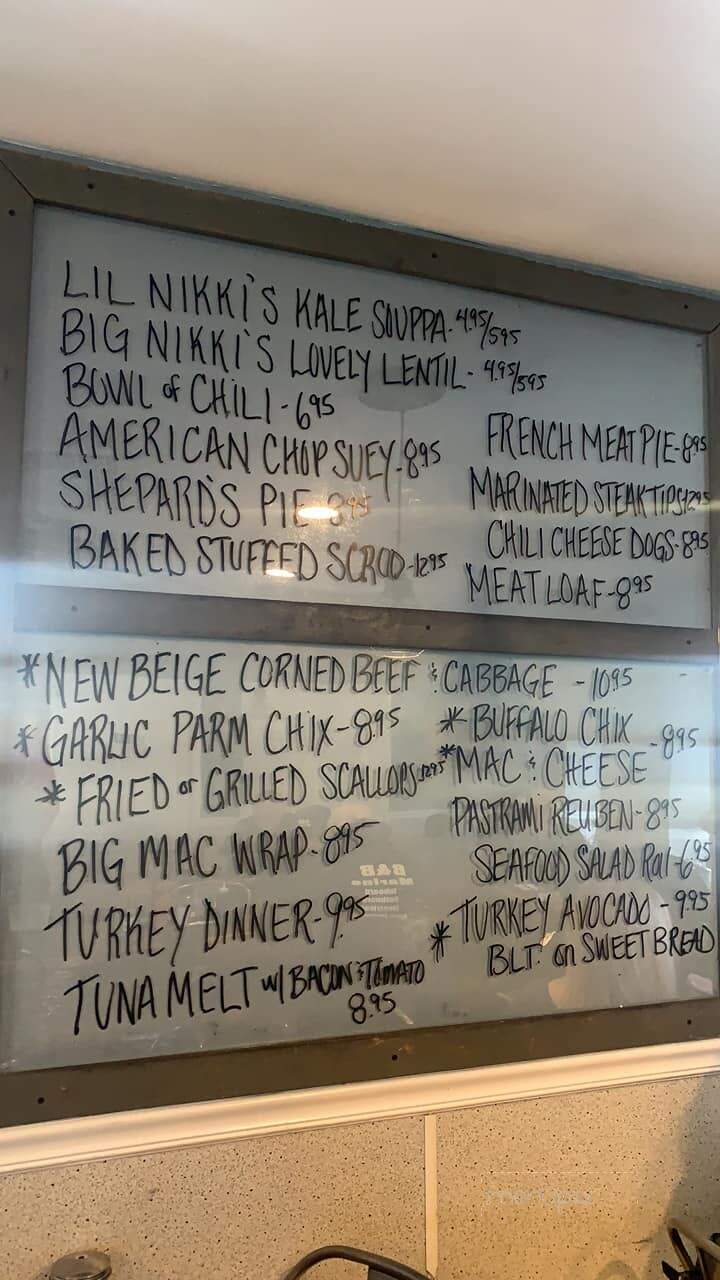 LIL NIKKI'S KALE SOUPPA-4.95/595
BIG NIKKI'S LOVELY LENTIL-4.95/595
BOWL of CHILI-695
AMERICAN CHOP SUEY-895
SHEPARD'S PIE-895
BAKED STUFFED SCROD-1295
FRENCH MEAT PIE-895
MARINATED STEAK TIPS-1295
CHILI CHEESE DOGS-895
MEAT LOAF-895
*NEW BEIGE CORNED BEEF & CABBAGE -1095
*GARLIC PARM CHIX-8.95
* FRIED or GRILLED SCALLOPS-1295
BIG MAC WRAP-895
TURKEY DINNER-9.95
TUNA MELT w/ BACON & TOMATO
8.95
*BUFFALO CHIX
*MAC & CHEESE -895
PASTRAMI REUBEN-895
SEAFOOD SALAD Roll-695
* TURKEY AVOCADO -9.95
BLT. on SWEET BREAD
B&B
Marine